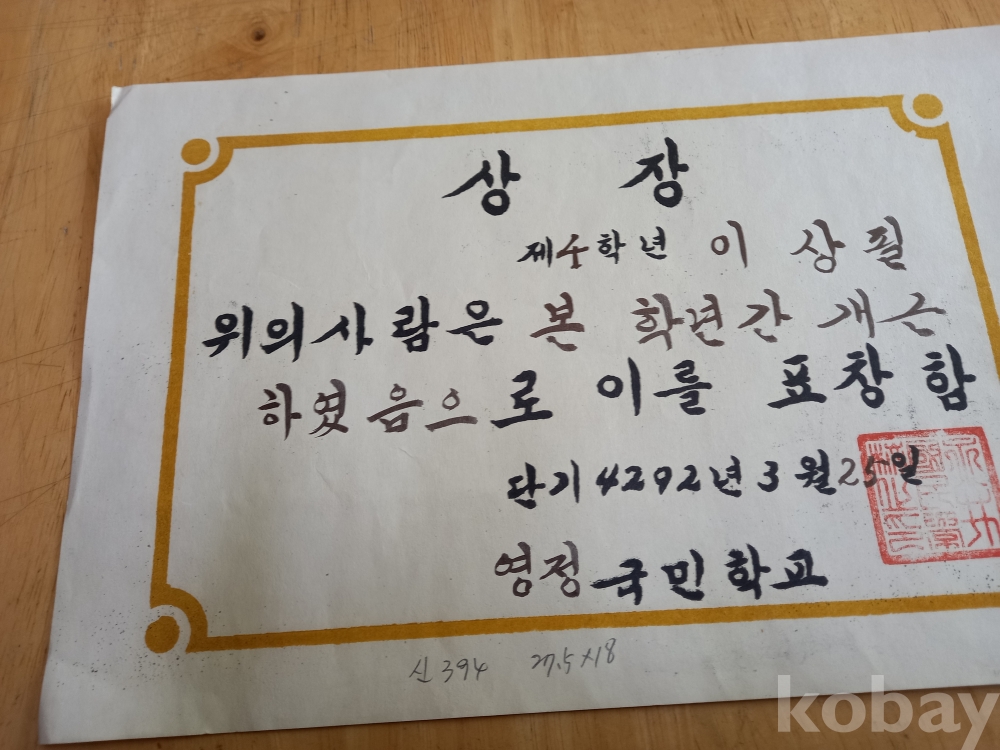 상 장
제4학년 이 상 필
위의 사람은 본 학년간 개근
하였음으로 이를 표창함
단기 4292년 3월 25일
영정 국민학교
신 394 27.5×18
kobay